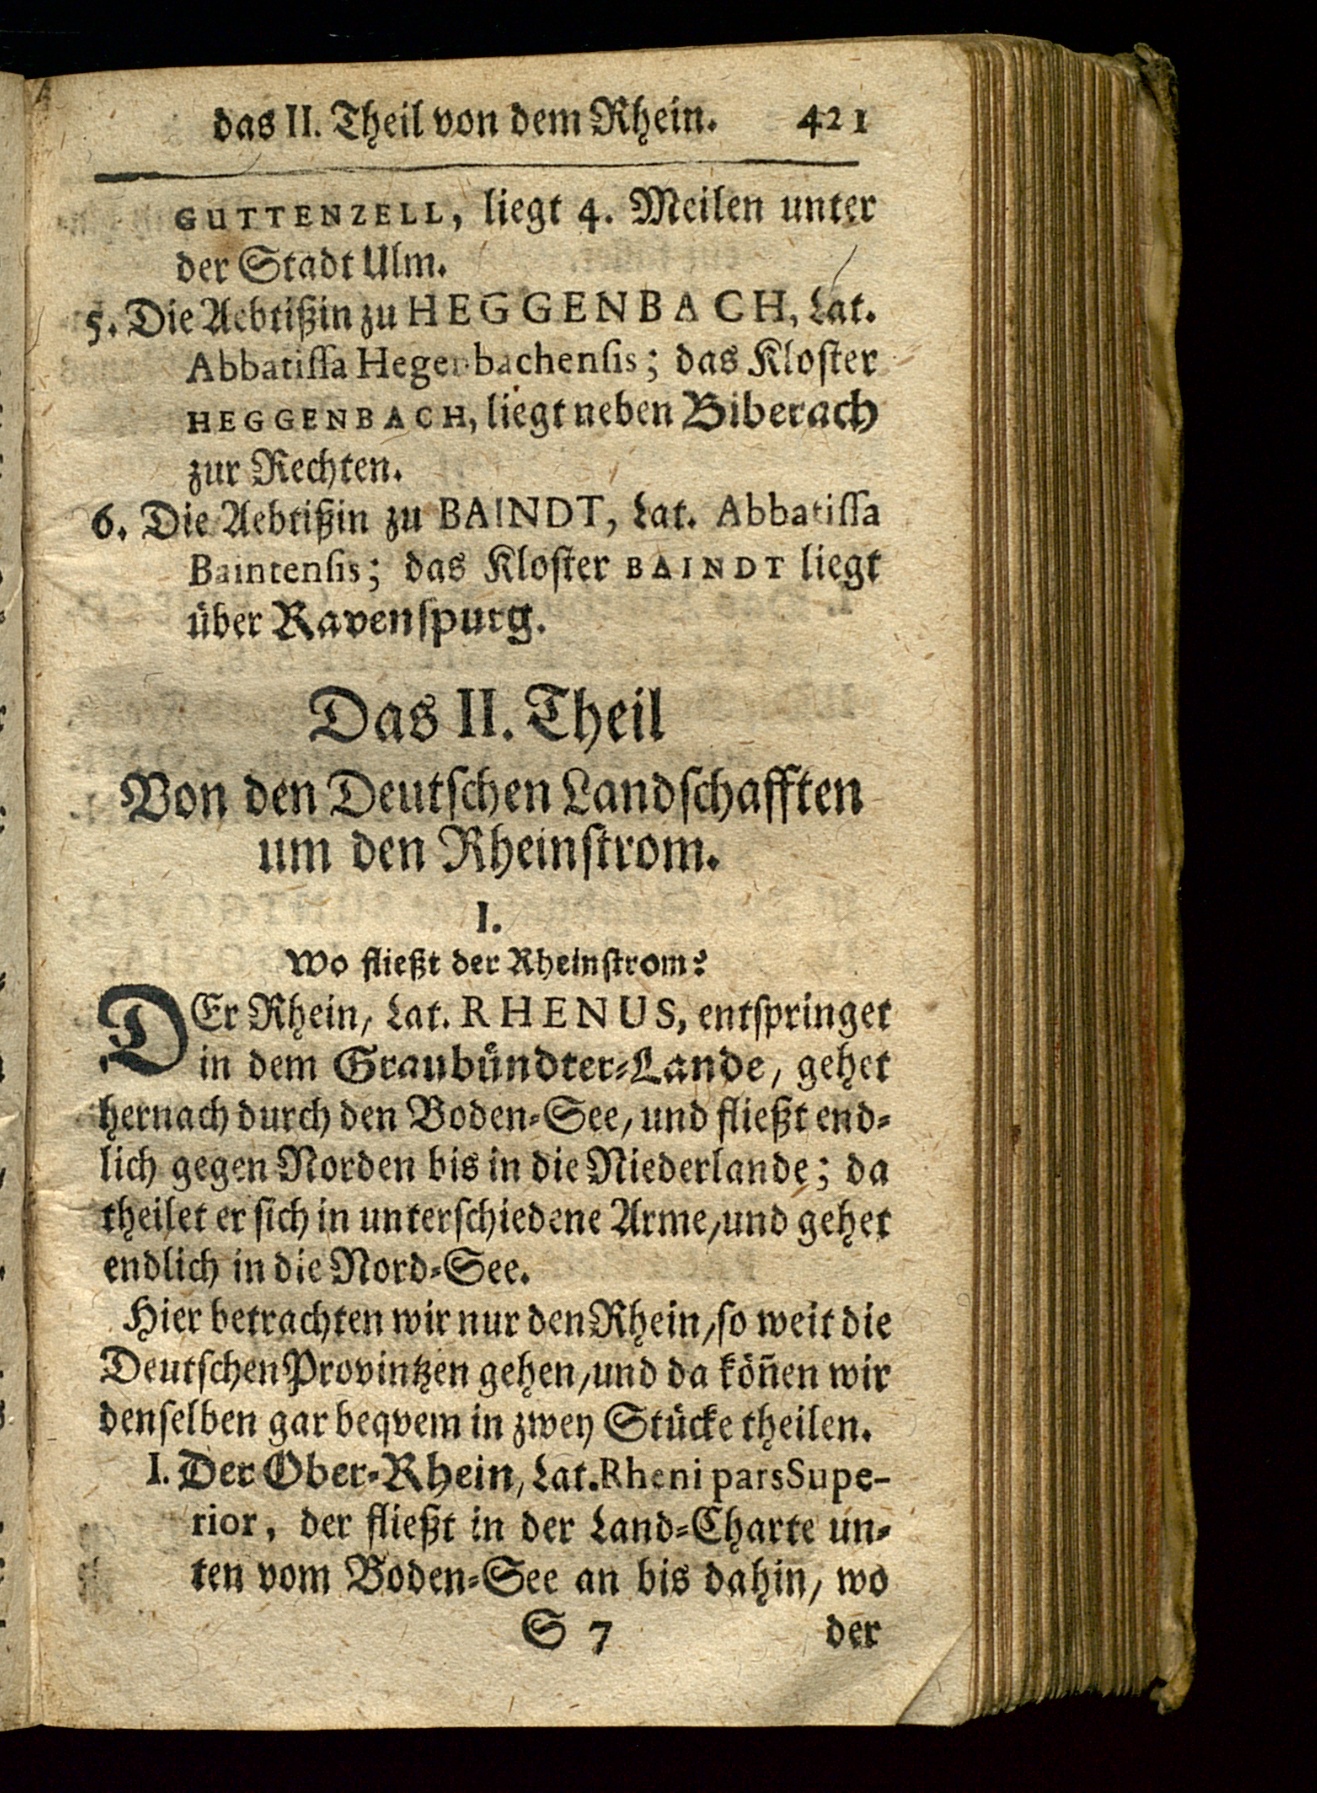 das II. Theil von dem Rhein. 421
GUTTENZELL, liegt 4. Meilen unter
der Stadt Ulm.
5. Die Aebtißin zu HEGGENBACH, Lat.
Abbatiſſa Hegenbachenſis; das Kloſter
HEGGENBACH, liegt neben Biberach
zur Rechten.
6. Die Aebtißin zu BAINDT, Lat. Abbatiſſa
Baintenſis; das Kloſter BAINDT liegt
über Ravenſpurg.
Das II. Theil
Von den Deutſchen Landſchafften
um den Rheinſtrom.
I.
Wo fließt der Rheinſtrom?
DEr Rhein, Lat. RHENUS, entſpringet
in dem Graubündter-Lande, gehet
hernach durch den Boden-See, und fließt end-
lich gegen Norden bis in die Niederlande; da
theilet er ſich in unterſchiedene Arme, und gehet
endlich in die Nord-See.
Hier betrachten wir nur den Rhein, ſo weit die
Deutſchen Provintzen gehen, und da köñen wir
denſelben gar beqvem in zwey Stücke theilen.
I. Der Ober-Rhein, Lat. Rheni pars Supe-
rior, der fließt in der Land-Charte un-
ten vom Boden-See an bis dahin, wo
S 7 der